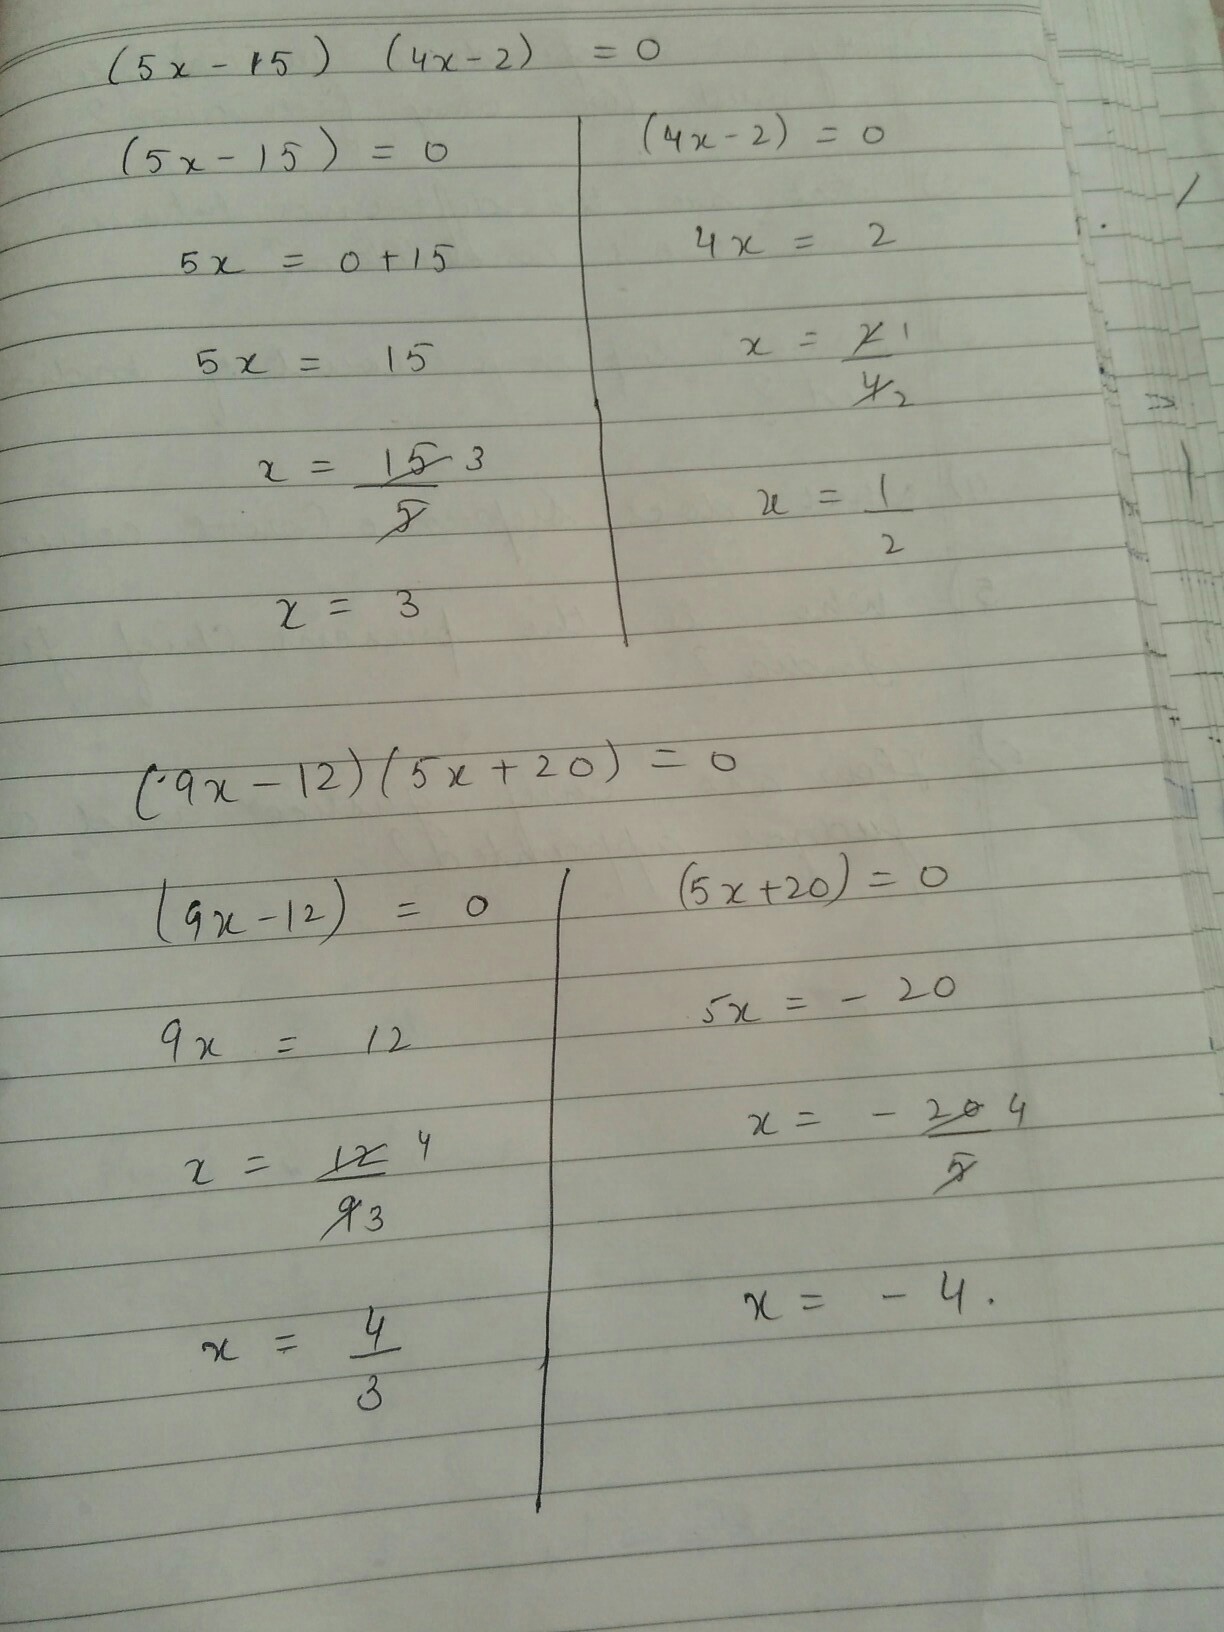 (5x - 15) (4x - 2) = 0
(5x - 15) = 0
5x = 0 + 15
5x = 15
x = 15 3
5
x = 3
(4x - 2) = 0
4x = 2
x = 2 1
4 2
x = 1
2
(9x - 12) (5x + 20) = 0
(9x - 12) = 0
9x = 12
x = 12 4
9 3
x = 4
3
(5x + 20) = 0
5x = - 20
x = - 20 4
5
x = - 4.